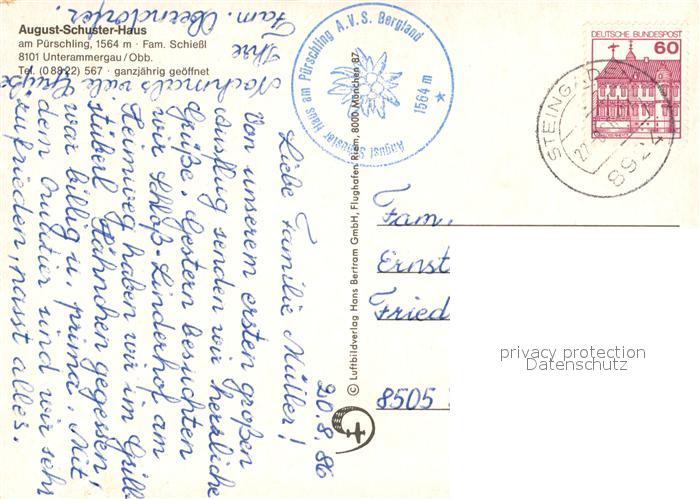 August-Schuster-Haus
am Pürschling, 1564 m · Fam. Schießl
8101 Unterammergau / Obb.
Tel. (0 88 22) 567 · ganzjährig geöffnet
20.8.86
Liebe Familie Müller!
Von unserem ersten großen
Ausflug senden wir herzliche
Grüße. Gestern besuchten
wir Schloß-Linderhof am
Heimweg haben wir im Grill
stüberl Hähnchen gegessen!
war billig u. prima. Mit
dem Quatier sind wir sehr
zufrieden, passt alles.
Nochmals viele Grüße
Ihre
Fam. Oberndorfer.
August Schuster Haus am Pürschling A.V.S. Bergland
1564 m
© Luftbildverlag Hans Bertram GmbH, Flughafen Riem, 8000 München 87
DEUTSCHE BUNDESPOST
60
STEING
8924
Fam.
Ernst
Fried
8505
privacy protection
Datenschutz